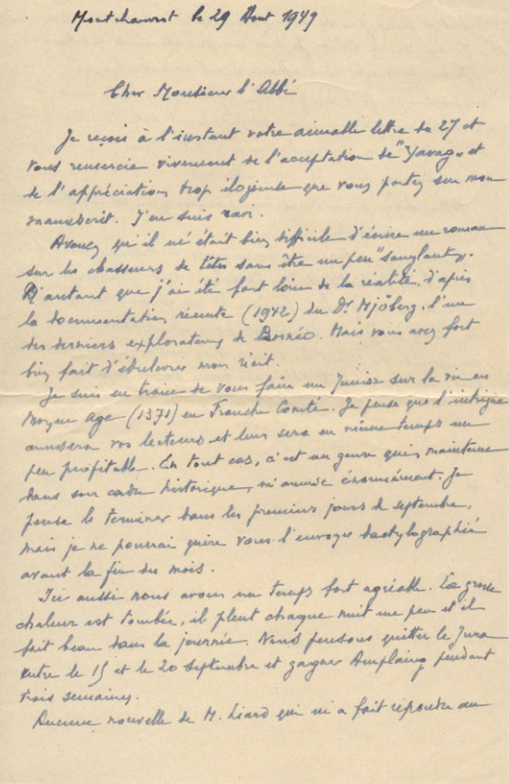 Montchauvrot le 29 Aout 1949
Cher Monsieur l'Abbé
Je reçois à l'instant votre aimable lettre du 27 et
vous remercie vivement de l'acceptation de "Yavag" et
de l'appréciation trop élogieuse que vous portez sur mon
manuscrit. J'en suis ravi.
Avouez qu'il m'était bien difficile d'écrire un roman
sur les chasseurs de têtes sans être un peu "sanglant".
D'autant que j'ai été fort loin de la réalité, d'après
la documentation récente (1942) du Dr Mjöberg, l'un
des derniers explorateurs de Bornéo. Mais vous avez fort
bien fait d'édulcorer mon récit.
Je suis en train de vous faire un Junior sur la vie au
Moyen Age (1371) en Franche Comté. Je pense que l'intrigue
amusera vos lecteurs et leur sera en même temps un
peu profitable. En tout cas, c'est un genre qui, maintenu
dans son cadre historique, m'amuse énormément. Je
pense le terminer dans les premiers jours de septembre,
mais je ne pourrai guère vous l'envoyer dactylographié
avant la fin du mois.
Ici aussi nous avons un temps fort agréable. La grosse
chaleur est tombée, il pleut chaque nuit un peu et il
fait beau dans la journée. Nous pensons quitter le Jura
entre le 15 et le 20 septembre et gagner Amplaing pendant
trois semaines.
Aucune nouvelle de M. Liard qui m'a fait répondre au